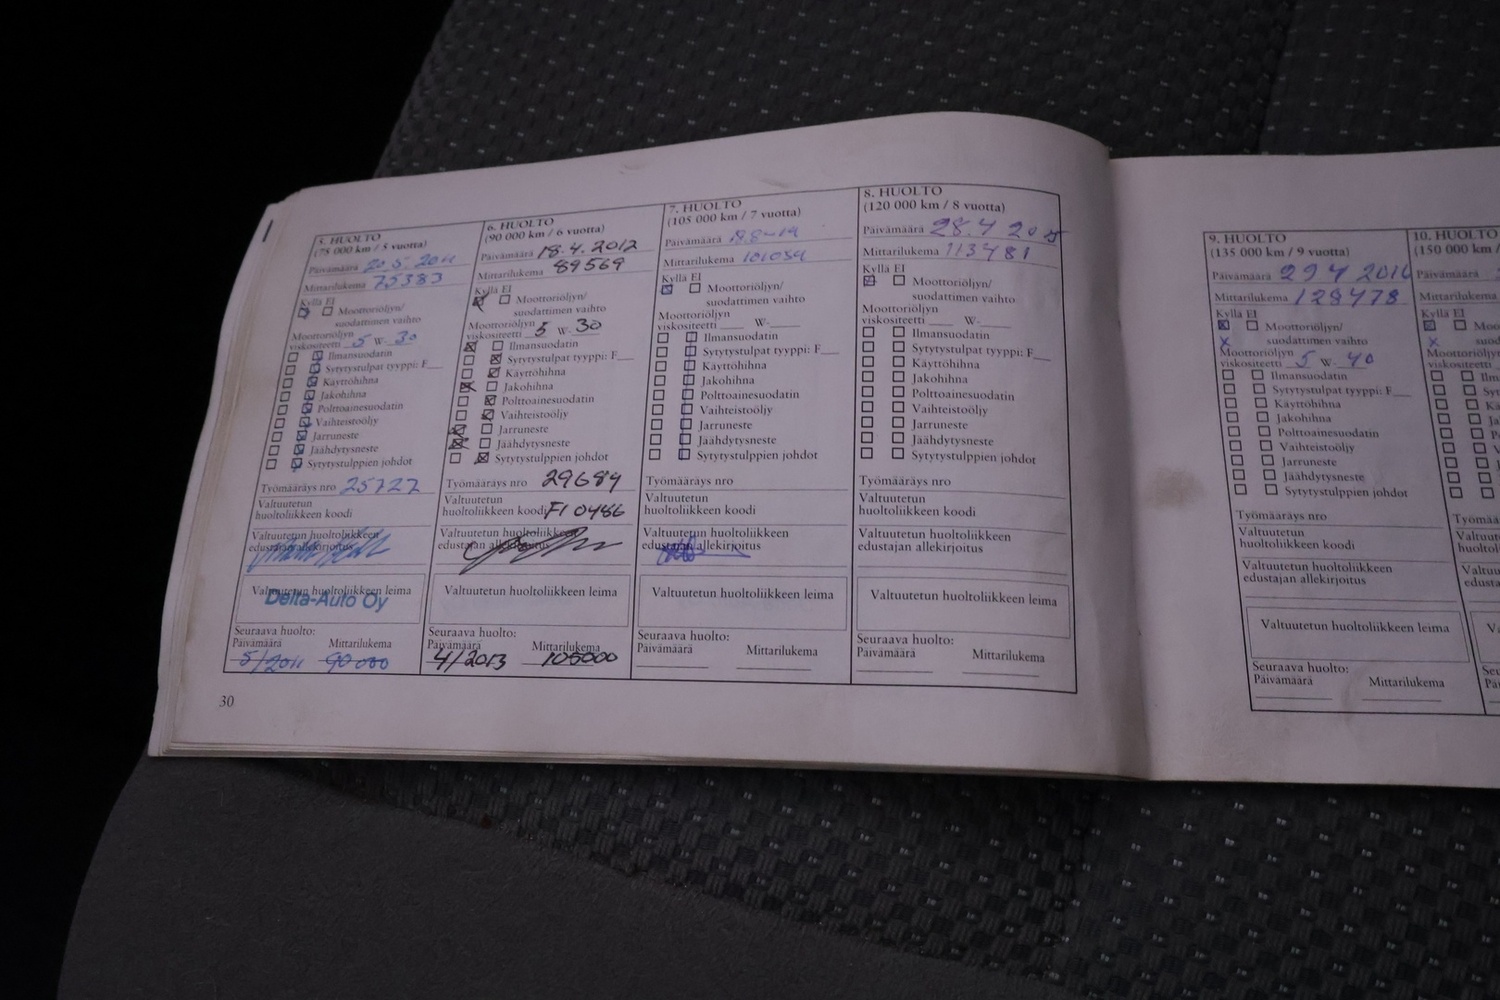 5. HUOLTO
(75 000 km / 5 vuotta)
Päivämäärä 20.5.2011
Mittarilukema 75383
Kyllä EI
Moottoriöljyn/
suodattimen vaihto
Moottoriöljyn
viskositeetti 5 W- 30
Ilmansuodatin
Sytytystulpat tyyppi: F
Käyttöhihna
Jakohihna
Polttoainesuodatin
Vaihteistoöljy
Jarruneste
Jäähdytysneste
Sytytystulppien johdot
Työmääräys nro 25727
Valtuutetun
huoltoliikkeen koodi
Valtuutetun huoltoliikkeen
edustajan allekirjoitus
Valtuutetun huoltoliikkeen leima
Delta-Auto Oy
Seuraava huolto:
Päivämäärä Mittarilukema
5/2011 90 000
30
6. HUOLTO
(90 000 km / 6 vuotta)
Päivämäärä 18.4.2012
Mittarilukema 89569
Kyllä EI
Moottoriöljyn/
suodattimen vaihto
Moottoriöljyn
viskositeetti 5 W- 30
Ilmansuodatin
Sytytystulpat tyyppi: F
Käyttöhihna
Jakohihna
Polttoainesuodatin
Vaihteistoöljy
Jarruneste
Jäähdytysneste
Sytytystulppien johdot
Työmääräys nro 29684
Valtuutetun
huoltoliikkeen koodi FI 0486
Valtuutetun huoltoliikkeen
edustajan allekirjoitus
Valtuutetun huoltoliikkeen leima
Seuraava huolto:
Päivämäärä Mittarilukema
4/2013 105000
7. HUOLTO
(105 000 km / 7 vuotta)
Päivämäärä
Mittarilukema
Kyllä EI
Moottoriöljyn/
suodattimen vaihto
Moottoriöljyn
viskositeetti W-
Ilmansuodatin
Sytytystulpat tyyppi: F
Käyttöhihna
Jakohihna
Polttoainesuodatin
Vaihteistoöljy
Jarruneste
Jäähdytysneste
Sytytystulppien johdot
Työmääräys nro
Valtuutetun
huoltoliikkeen koodi
Valtuutetun huoltoliikkeen
edustajan allekirjoitus
Valtuutetun huoltoliikkeen leima
Seuraava huolto:
Päivämäärä Mittarilukema
8. HUOLTO
(120 000 km / 8 vuotta)
Päivämäärä 28.4 2015
Mittarilukema 113481
Kyllä EI
Moottoriöljyn/
suodattimen vaihto
Moottoriöljyn
viskositeetti W-
Ilmansuodatin
Sytytystulpat tyyppi: F
Käyttöhihna
Jakohihna
Polttoainesuodatin
Vaihteistoöljy
Jarruneste
Jäähdytysneste
Sytytystulppien johdot
Työmääräys nro
Valtuutetun
huoltoliikkeen koodi
Valtuutetun huoltoliikkeen
edustajan allekirjoitus
Valtuutetun huoltoliikkeen leima
Seuraava huolto:
Päivämäärä Mittarilukema
9. HUOLTO
(135 000 km / 9 vuotta)
Päivämäärä 29 4 2016
Mittarilukema 128478
Kyllä EI
Moottoriöljyn/
suodattimen vaihto
Moottoriöljyn
viskositeetti 5 W- 40
Ilmansuodatin
Sytytystulpat tyyppi: F
Käyttöhihna
Jakohihna
Polttoainesuodatin
Vaihteistoöljy
Jarruneste
Jäähdytysneste
Sytytystulppien johdot
Työmääräys nro
Valtuutetun
huoltoliikkeen koodi
Valtuutetun huoltoliikkeen
edustajan allekirjoitus
Valtuutetun huoltoliikkeen leima
Seuraava huolto:
Päivämäärä Mittarilukema
10. HUOLTO
(150 000 km /
Päivämäärä
Mittarilukema
Kyllä EI